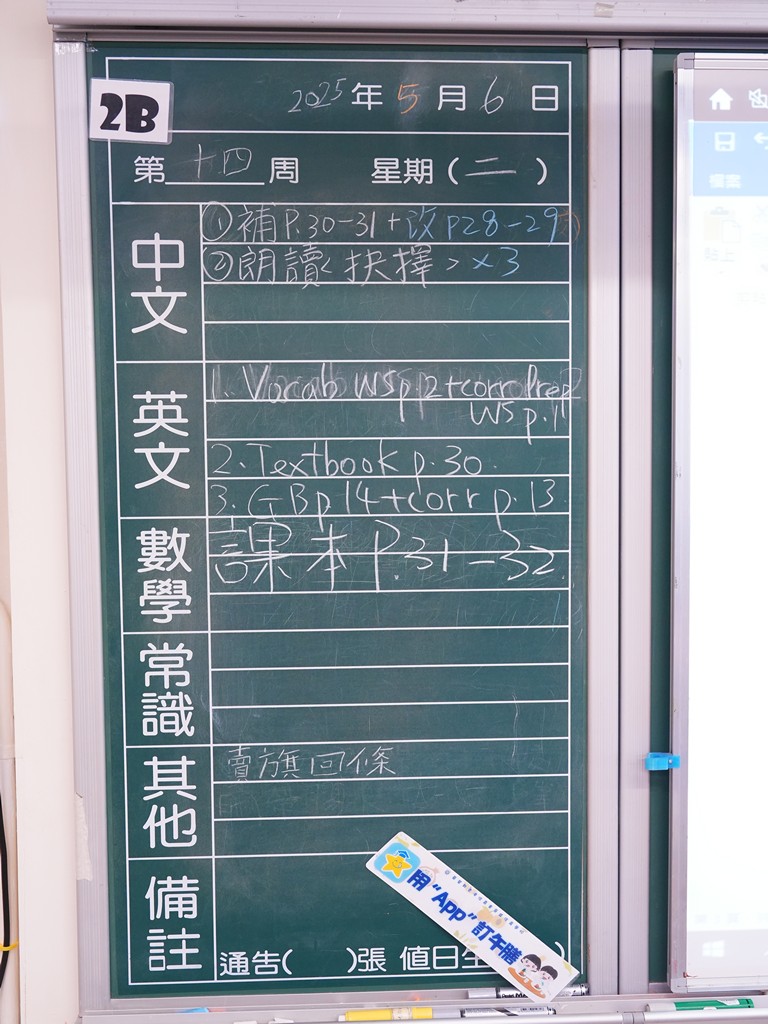 2B
2025年5月6日
第十四周 星期(二)
中文
①補P.30-31+改P28-29
②朗讀<抉擇>×3
英文
1. Vocab WS p.2+corr Prep
WS p.11
2. Textbook p.30.
3. GB p.14+corr p.13.
數學
課本 P.31-32.
常識
其他
賣旗回條
備註
通告( )張 值日生 )
用“App”訂午膳
檔案
貼上